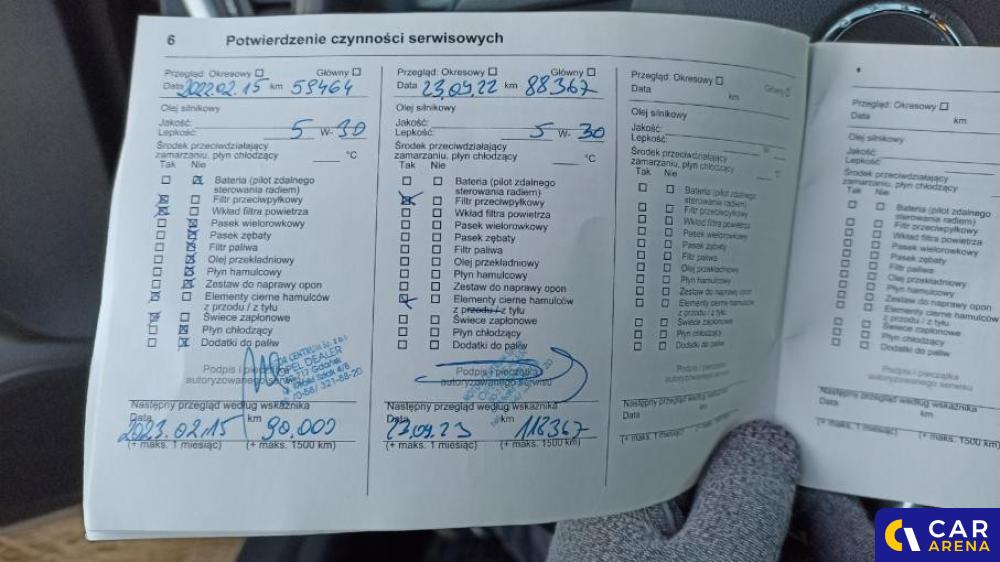 6 Potwierdzenie czynności serwisowych
Przegląd: Okresowy Główny
Data 2022.02.15 km 59464
Olej silnikowy
Jakość:
Lepkość: 5 W- 30
Środek przeciwdziałający
zamarzaniu, płyn chłodzący °C
Tak Nie
Bateria (pilot zdalnego
sterowania radiem)
Filtr przeciwpyłkowy
Wkład filtra powietrza
Pasek wielorowkowy
Pasek zębaty
Filtr paliwa
Olej przekładniowy
Płyn hamulcowy
Zestaw do naprawy opon
Elementy cierne hamulców
z przodu / z tyłu
Świece zapłonowe
Płyn chłodzący
Dodatki do paliw
Podpis i
autoryzowanego
OPEL DEALER
Gdańsk
Następny przegląd według wskaźnika
Data km
2023.02.15 90.000
(+ maks. 1 miesiąc) (+ maks. 1500 km)
Przegląd: Okresowy Główny
Data 23.09.22 km 88367
Olej silnikowy
Jakość:
Lepkość: 5 W- 30
Środek przeciwdziałający
zamarzaniu, płyn chłodzący °C
Tak Nie
Bateria (pilot zdalnego
sterowania radiem)
Filtr przeciwpyłkowy
Wkład filtra powietrza
Pasek wielorowkowy
Pasek zębaty
Filtr paliwa
Olej przekładniowy
Płyn hamulcowy
Zestaw do naprawy opon
Elementy cierne hamulców
z przodu / z tyłu
Świece zapłonowe
Płyn chłodzący
Dodatki do paliw
Podpis i pieczątka
autoryzowanego serwisu
Następny przegląd według wskaźnika
Data km
23.09.23 118367
(+ maks. 1 miesiąc) (+ maks. 1500 km)
Przegląd: Okresowy Główny
Data km
Olej silnikowy
Jakość:
Lepkość: W-
Środek przeciwdziałający
zamarzaniu, płyn chłodzący °C
Tak Nie
Bateria (pilot zdalnego
sterowania radiem)
Filtr przeciwpyłkowy
Wkład filtra powietrza
Pasek wielorowkowy
Pasek zębaty
Filtr paliwa
Olej przekładniowy
Płyn hamulcowy
Zestaw do naprawy opon
Elementy cierne hamulców
z przodu / z tyłu
Świece zapłonowe
Płyn chłodzący
Dodatki do paliw
Podpis i pieczątka
autoryzowanego serwisu
Następny przegląd według wskaźnika
Data km
(+ maks. 1 miesiąc) (+ maks. 1500 km)
Przegląd: Okresowy
Data km
Olej silnikowy
Jakość:
Lepkość:
Środek przeciwdziałający
zamarzaniu, płyn chłodzący
Tak Nie
Bateria (pilot zdalnego
sterowania radiem)
Filtr przeciwpyłkowy
Wkład filtra powietrza
Pasek wielorowkowy
Pasek zębaty
Filtr paliwa
Olej przekładniowy
Płyn hamulcowy
Zestaw do naprawy opon
Elementy cierne hamulców
z przodu / z tyłu
Świece zapłonowe
Płyn chłodzący
Dodatki do paliw
Podpis i pieczątka
autoryzowanego serwisu
Następny przegląd według wskaźnika
Data km
(+ maks. 1 miesiąc) (+ maks. 1500 km)
CAR
ARENA